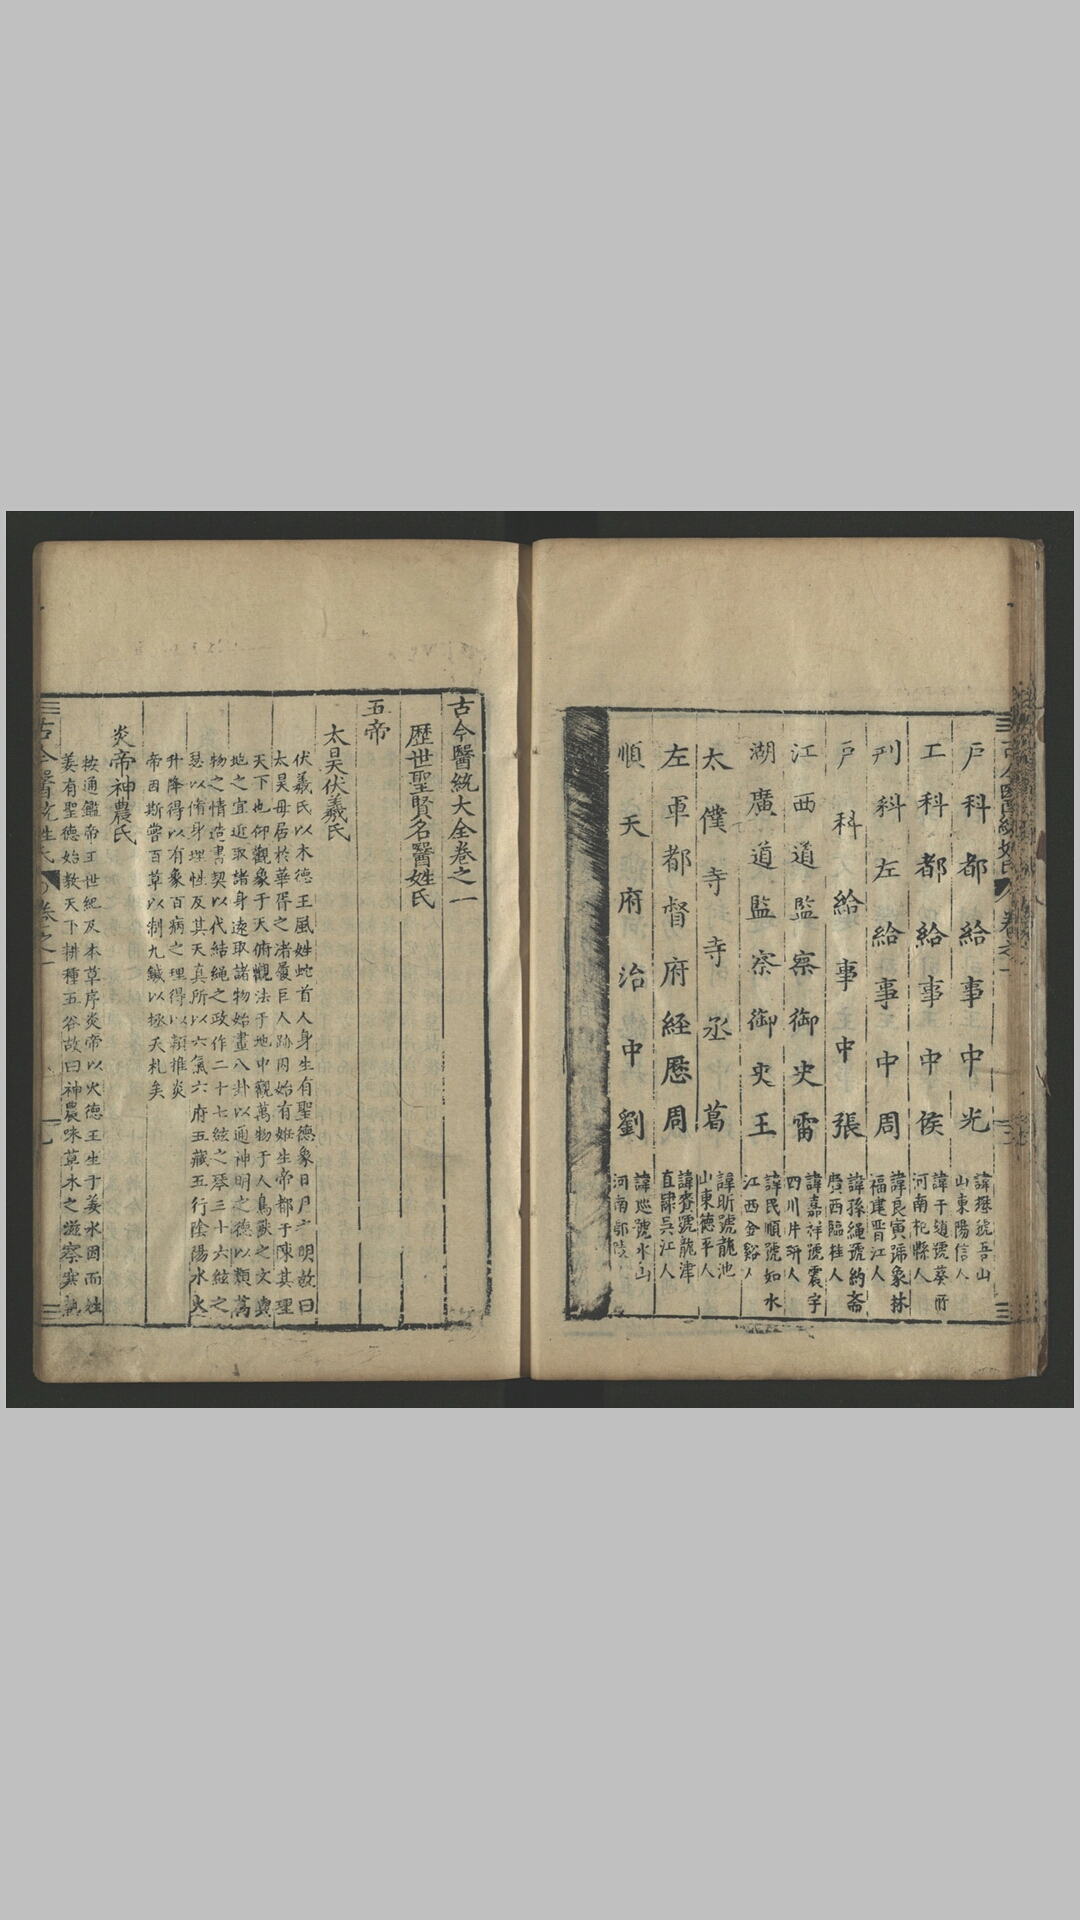 戶科都給事中光
諱懋號吾山
山東陽信人
工科都給事中侯
諱于道號葵所
河南杞縣人
刑科左給事中周
諱良寅號象林
福建晋江人
戶科給事中張
諱孫繩號約齋
廣西臨桂人
江西道監察御史雷
諱嘉祥號震宇
四川井研人
湖廣道監察御史王
諱民順號如水
江西金谿人
太僕寺寺丞葛
諱昕號龍池
山東德平人
左軍都督府經歷周
諱號龍津
直隸吴江人
順天府治中劉
諱巡號水山
河南鄢陵
古今醫統大全卷之一
歷世聖賢名醫姓氏
五帝
太昊伏羲氏
伏羲氏以木德王風姓蛇首人身生有聖德象日月之明故曰
太昊母居於華胥之渚履巨人跡因始有娠生帝都于陳其理
天下也仰觀象于天俯觀法于地中觀萬物于人鳥獸之文與
地之宜近取諸身遠取諸物始畫八卦以通神明之德以類萬
物之情造書契以代結繩之政作二十七絃之琴三十六絃之
瑟以脩身理性反其天真所以六氣六府五藏五行陰陽水火
升降得以有象百病之理得以類推炎
帝因斯嘗百草以制九鍼以拯夭札矣
炎帝神農氏
按通鑑帝王世紀及本草序炎帝以火德王生于姜水因而姓
姜有聖德始教天下耕種五谷故曰神農味草木之滋察寒熱
古今醫統姓氏 卷之一